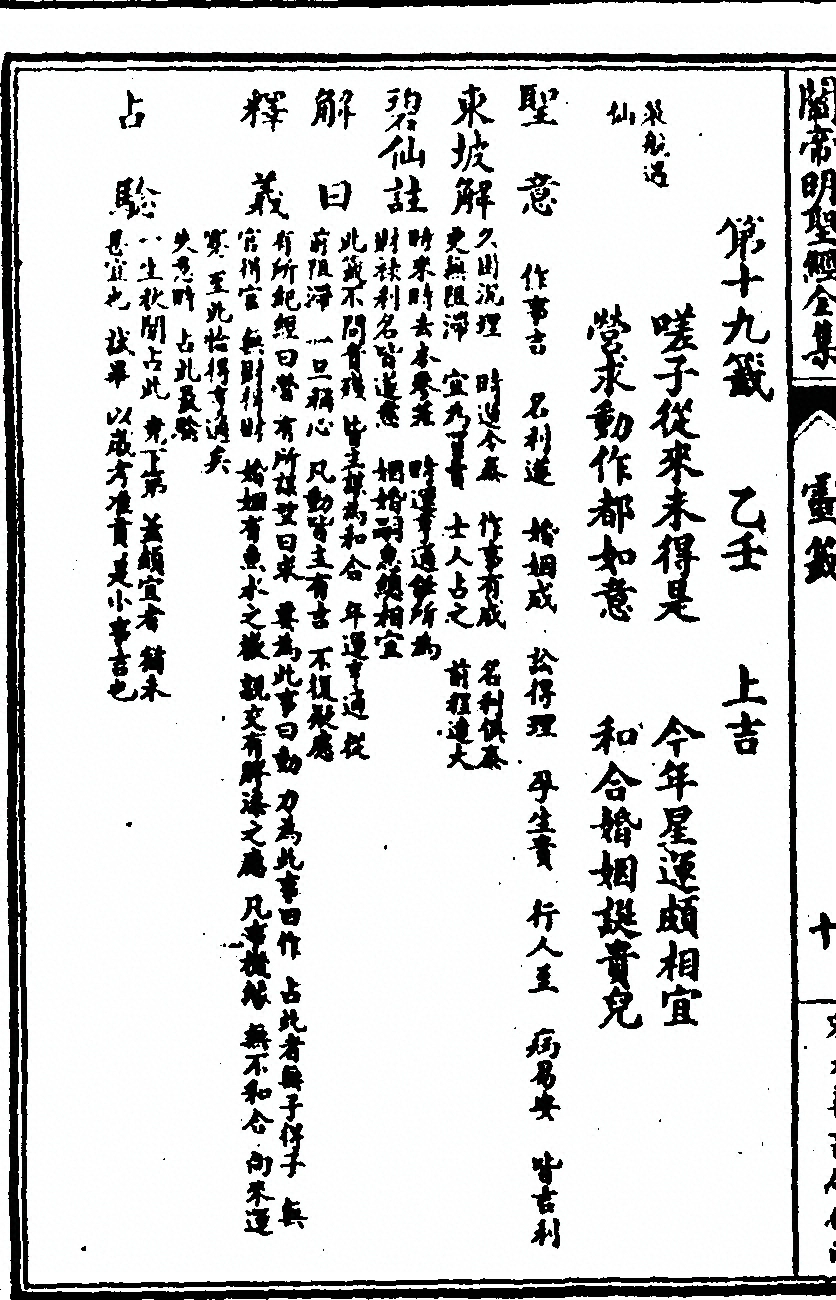 關帝明聖經全集 靈籤 十
第十九籤 乙壬 上吉
嗟子從來未得是 今年星運頗相宜
營求動作都如意 和合婚姻誕貴兒
航遇
仙
聖意 作事吉 名利遂 婚姻成 訟得理 孕生貴 行人至 病易安 皆吉利
東坡解 久困沉埋 時運令泰 作事有成 名利俱泰
更無阻滯 宜為 士人占之 前程遠大
碧仙註 時來時去本 時運亨通任所為
財祿利名皆遂意 姻婚嗣息總相宜
解曰 此籤不問貴賤 皆主謀為和合 年運亨通 從
前阻滯 一旦稱心 凡動皆主有吉 不復疑慮
釋義 有所紀經曰營 有所謀望曰求 要為此事曰動 力為此事曰作 占此者無子得子 無
官得官 無財得財 婚姻有魚水之歡 親交有膠漆之應 凡事機緣 無不和合 向來運
寒 至此恰得亨通矣
失意時 占此最驗
占驗 一生秋闈占此 竟下第 蓋頗宜者 猶未
甚宜也 試畢 以歲考准貢 是小事吉也